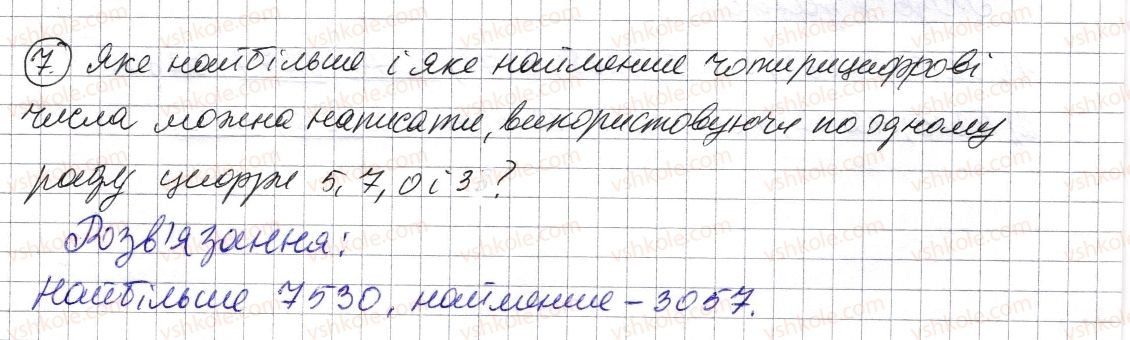 7. Яке найбільше і яке найменше чотирицифрові
числа можна написати, використовуючи по одному
разу цифри 5, 7, 0 і 3?
Розв'язання:
Найбільше 7530, найменше – 3057.